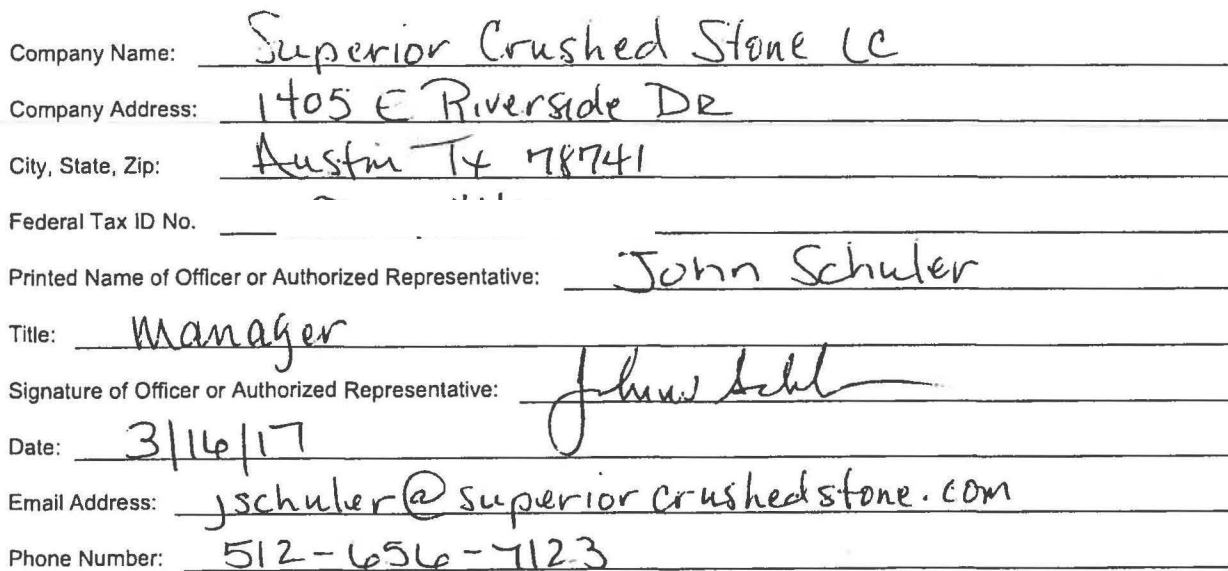 Company Name: Superior Crushed Stone LC
Company Address: 1405 E Riverside DR
City, State, Zip: Austin Tx 78741
Federal Tax ID No.
Printed Name of Officer or Authorized Representative: John Schuler
Title: Manager
Signature of Officer or Authorized Representative:
Date: 3/16/17
Email Address: jschuler@superiorcrushedstone.com
Phone Number: 512-656-7123